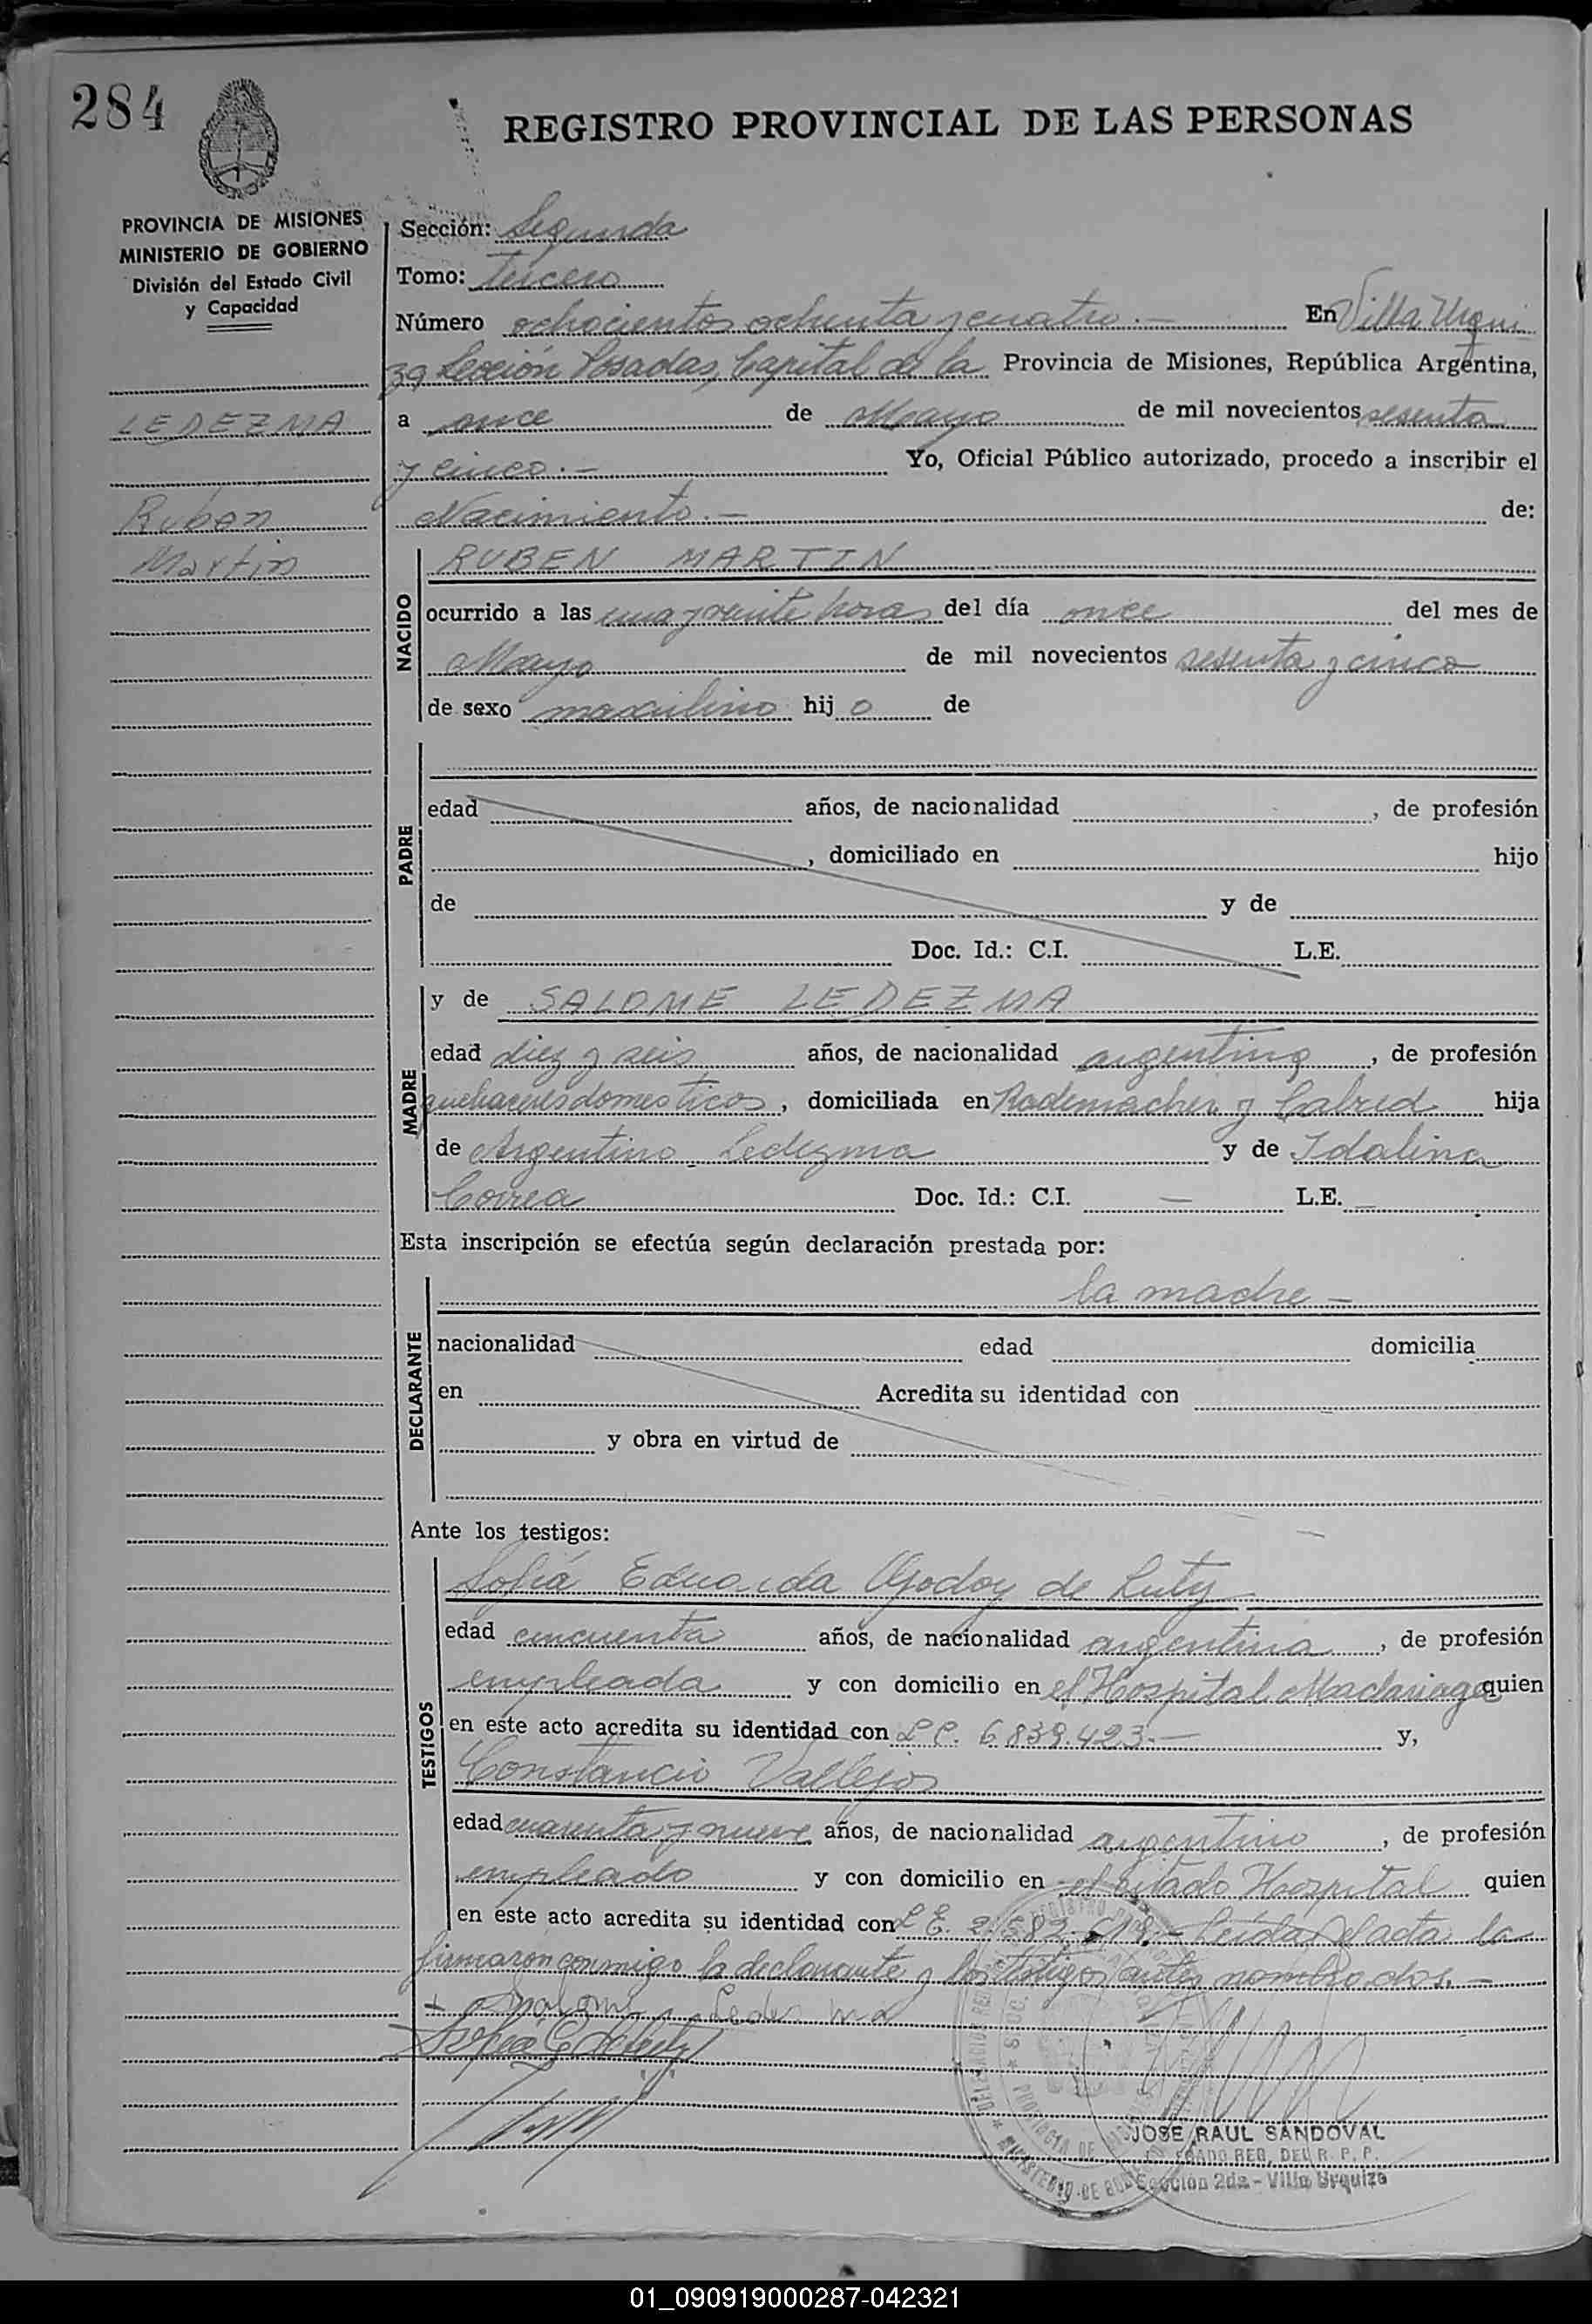 284
REGISTRO PROVINCIAL DE LAS PERSONAS
PROVINCIA DE MISIONES
MINISTERIO DE GOBIERNO
División del Estado Civil
y Capacidad
LEDEZMA
Ruben
Martin
Sección: Segunda
Tomo: Tercero
Número ochocientos ochenta y cuatro.- En Villa Urqui
za Sección Posadas, Capital de la Provincia de Misiones, República Argentina,
a once de Mayo de mil novecientos sesenta
y cinco.- Yo, Oficial Público autorizado, procedo a inscribir el
Nacimiento.- de:
NACIDO
RUBEN MARTIN
ocurrido a las una y veinte horas del día once del mes de
Mayo de mil novecientos sesenta y cinco
de sexo masculino hijo de
PADRE
edad años, de nacionalidad , de profesión
, domiciliado en hijo
de y de
Doc. Id.: C.I. L.E.
MADRE
y de SALOME LEDEZMA
edad diez y seis años, de nacionalidad argentina, de profesión
quehaceres domesticos, domiciliada en Rademacher y Cabred hija
de Argentino Ledezma y de Idalina
Correa Doc. Id.: C.I. — L.E. —
Esta inscripción se efectúa según declaración prestada por:
DECLARANTE
la madre -
nacionalidad edad domicilia
en Acredita su identidad con
y obra en virtud de
Ante los testigos:
TESTIGOS
Sofía Eduarda Godoy de Luty
edad cincuenta años, de nacionalidad argentina, de profesión
empleada y con domicilio en el Hospital Madariaga quien
en este acto acredita su identidad con L C. 6.839.423.- y,
Constancio Vallejos
edad cuarenta y nueve años, de nacionalidad argentino, de profesión
empleado y con domicilio en el citado Hospital quien
en este acto acredita su identidad con L E. Leída el acta la
firmaron conmigo la declarante y los testigos antes nombrados.-
Salome Ledesma
JOSE RAUL SANDOVAL
REG. DEL R. P. P.
Sección 2da - Villa Urquiza
01_090919000287-042321